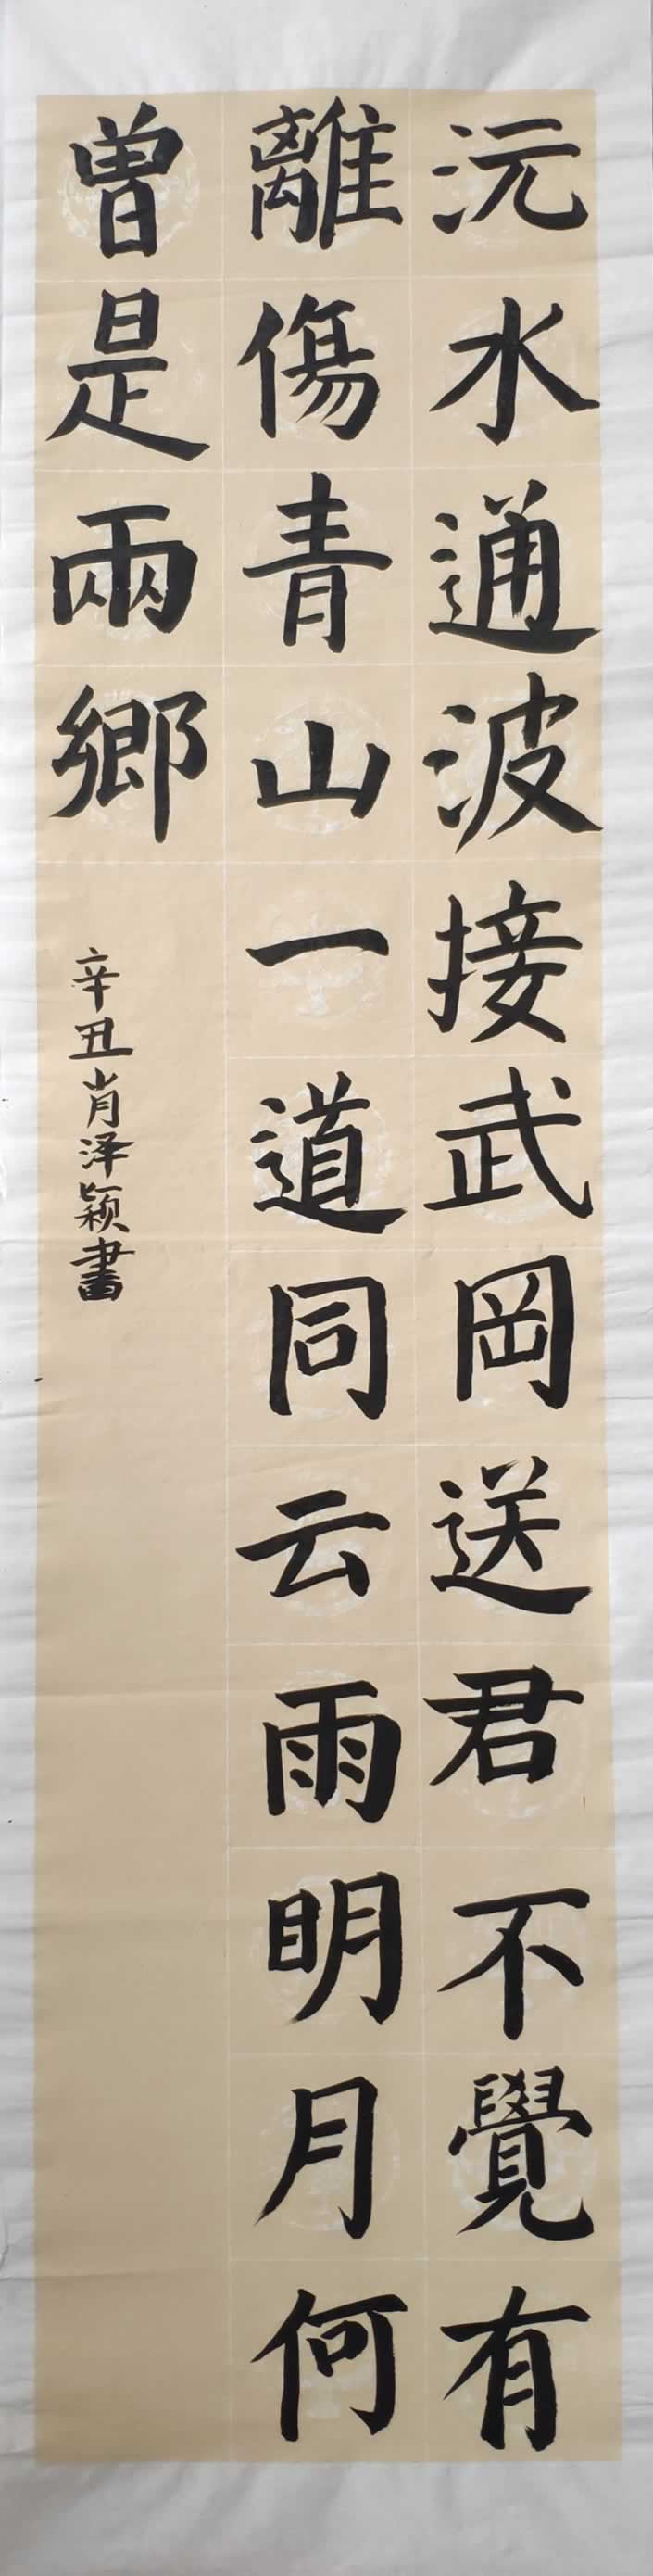 沅水通波接武岡送君不覺有
離傷青山一道同云雨明月何
曽是兩鄉
辛丑肖泽颖書